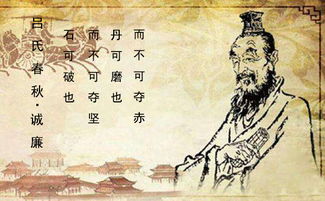 吕氏春秋·诚廉
石可破也
而不可夺坚
丹可磨也
而不可夺赤